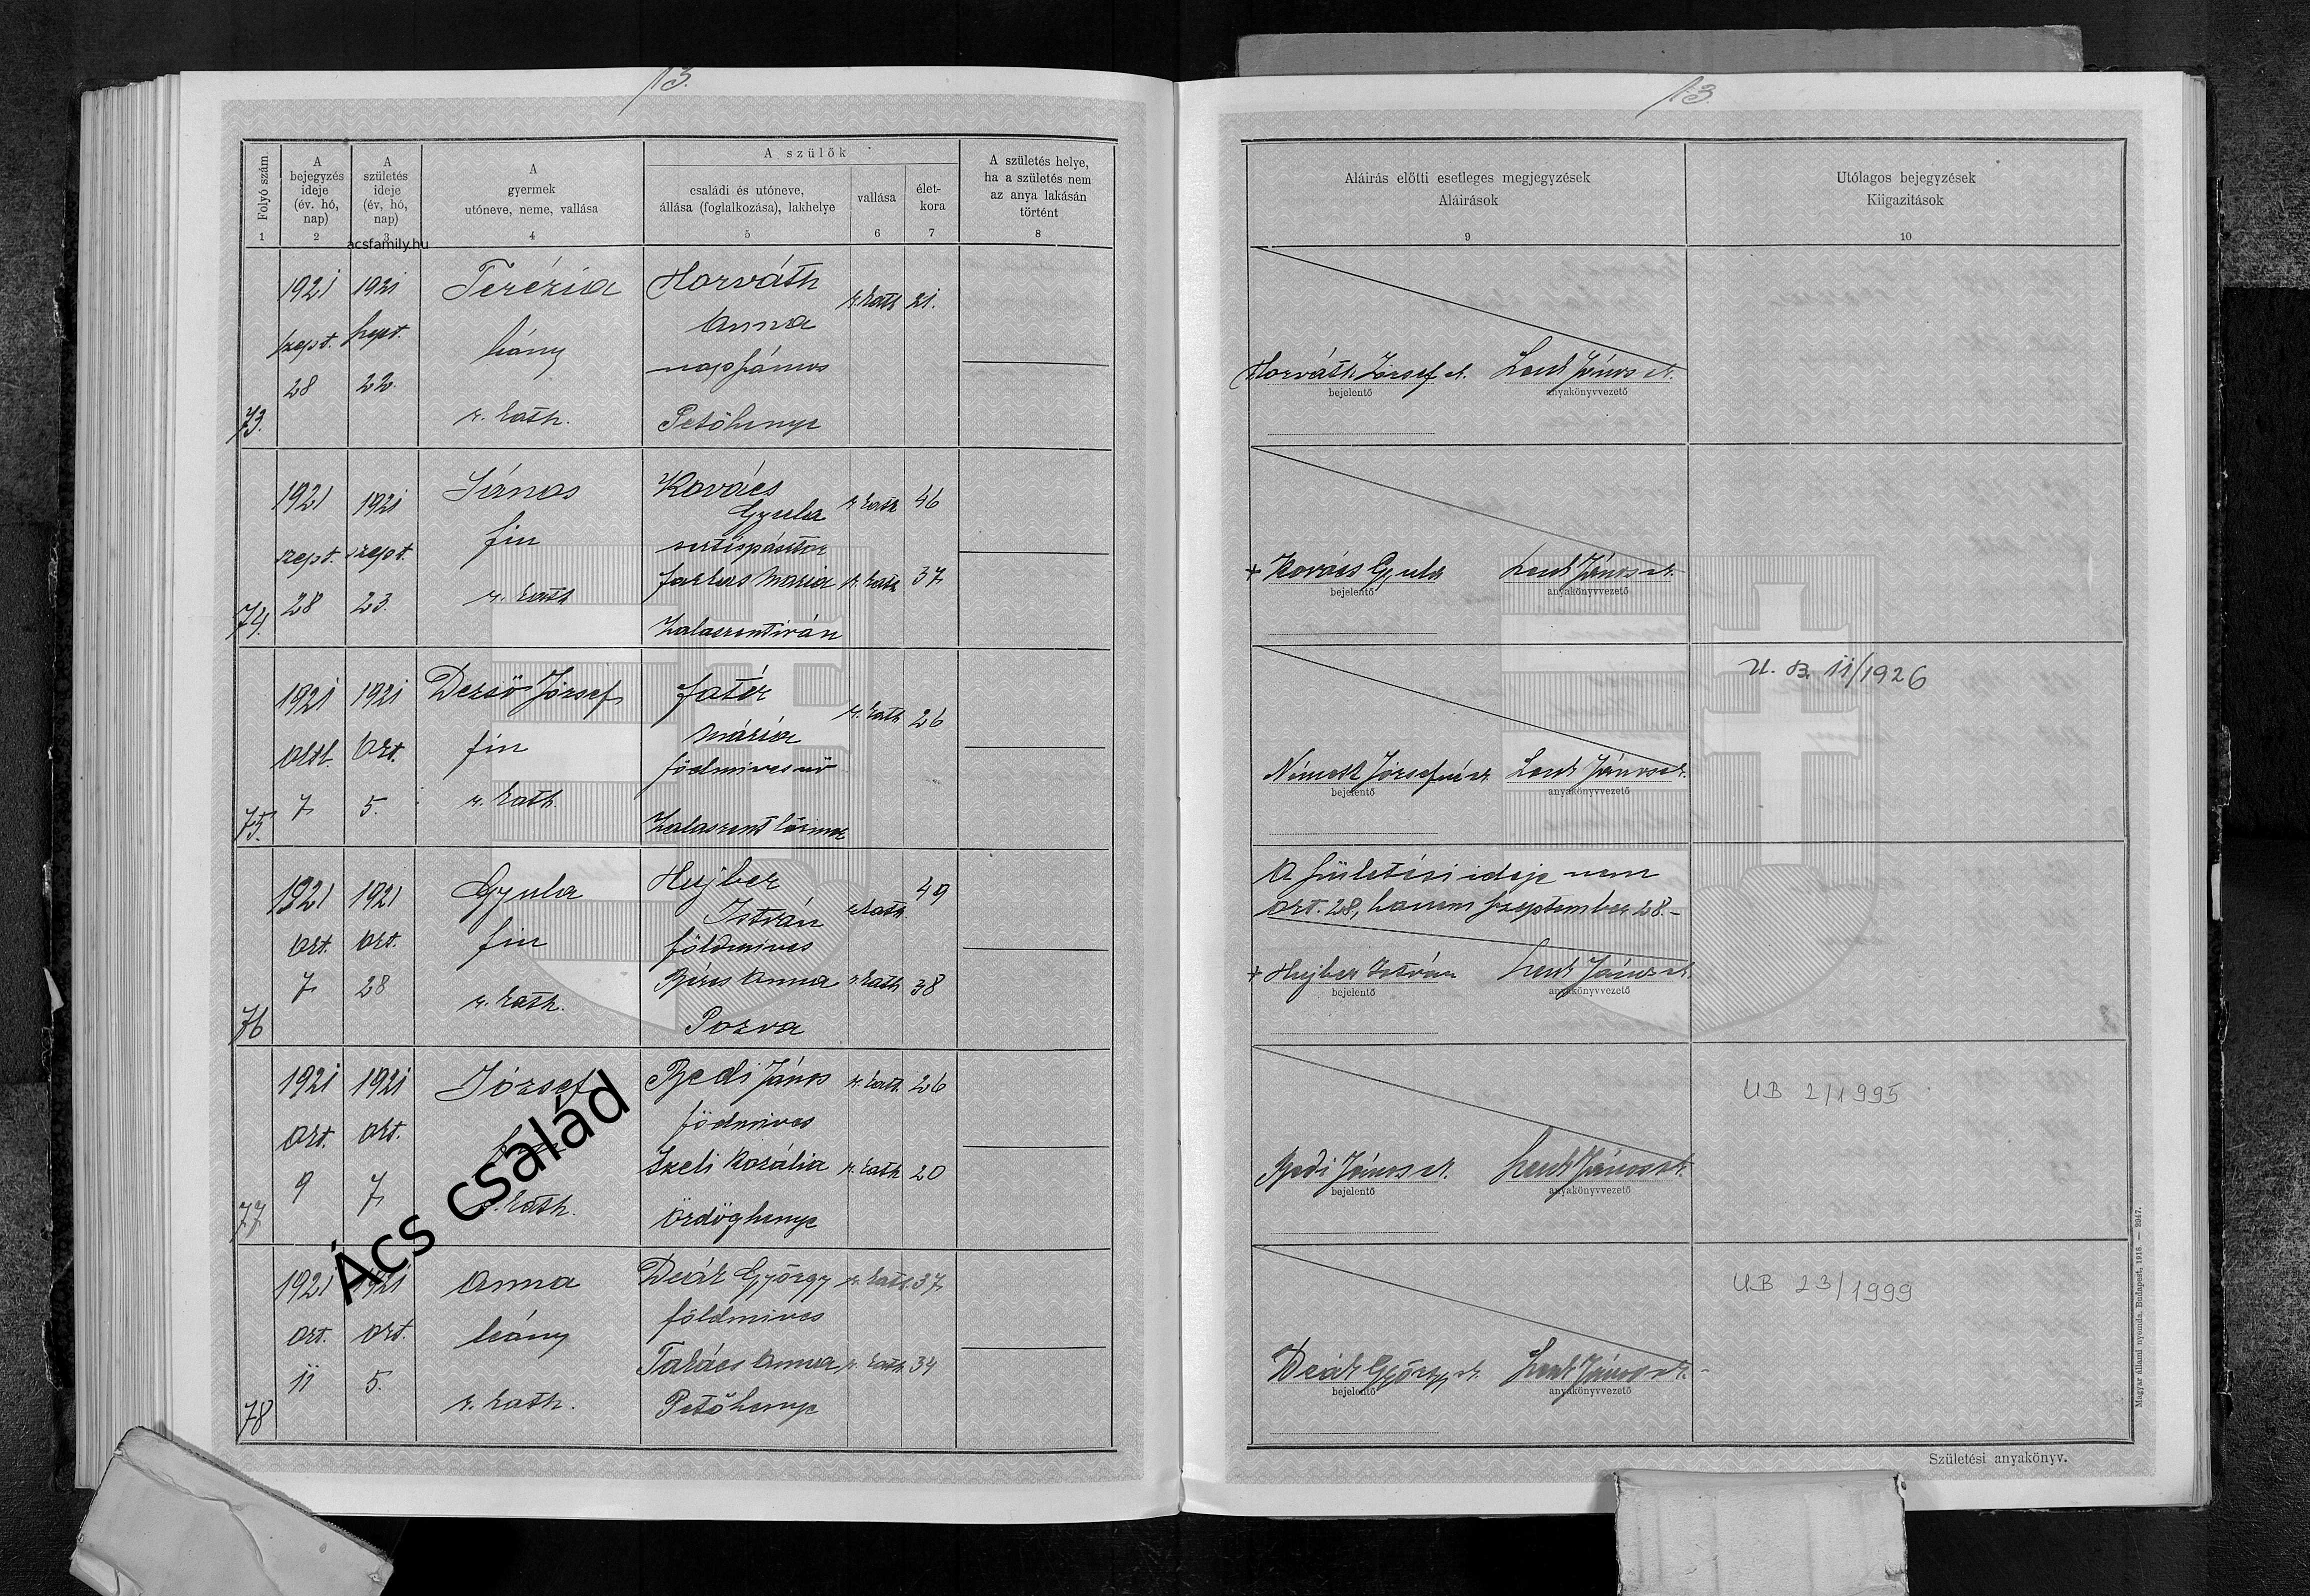 13.
A szülők
Folyó szám
A bejegyzés ideje (év. hó, nap)
A születés ideje (év, hó, nap)
A gyermek utóneve, neme, vallása
családi és utóneve, állása (foglalkozása), lakhelye
vallása
életkora
A születés helye, ha a születés nem az anya lakásán történt
1 2 3 4 5 6 7 8
acsfamily.hu
73.
1921 szept. 28
1921 szept. 22.
Terézia
leány
r. kath.
Horváth
Anna
napszámos
Petőhenye
r. kath 21.
74.
1921 szept. 28
1921 szept. 23.
János
fiu
r. kath
Kovács
Gyula
sertéspásztor
Farkas Mária
Zalaszentiván
r. kath 46
r. kath 37
75.
1921 okt. 7
1921 Okt. 5.
Dezső József
fiu
r. kath.
Fatér
Mária
födmivesnö
Zalaszentlőrincz
r. kath 26
76
1921 Okt. 7
1921 Okt. 28
Gyula
fiu
r. kath.
Hujber
István
földmives
Béres Anna
Pozva
r. kath. 49
r. kath 38
77
1921 Okt. 9
1921 Okt. 7
József
r. kath.
Bedi János
födmives
Szeli Rozália
Ördöghenye
r. kath. 26
r. kath 20
78
1921 Okt. 11
1921 Okt. 5.
Anna
leány
r. kath.
Deák György
földmives
Takács Anna
Petőhenye
r. kath. 37
r. kath 34
Ács család
13.
Aláírás előtti esetleges megjegyzések
Aláírások
9
Utólagos bejegyzések
Kiigazítások
10
Horváth József
János
bejelentő
anyakönyvvezető
+ Kovács Gyula
János
bejelentő
anyakönyvvezető
U. B. 11/1926
Németh Józsefné
János
bejelentő
anyakönyvvezető
A születési ideje nem
okt. 28, hanem szeptember 28.-
+ Hujber István
János
bejelentő
anyakönyvvezető
UB 2/1995
Bedi János
János
bejelentő
anyakönyvvezető
UB 23/1999
Deák György
János
bejelentő
anyakönyvvezető
Születési anyakönyv.
Magyar állami nyomda. Budapest, 1918. —